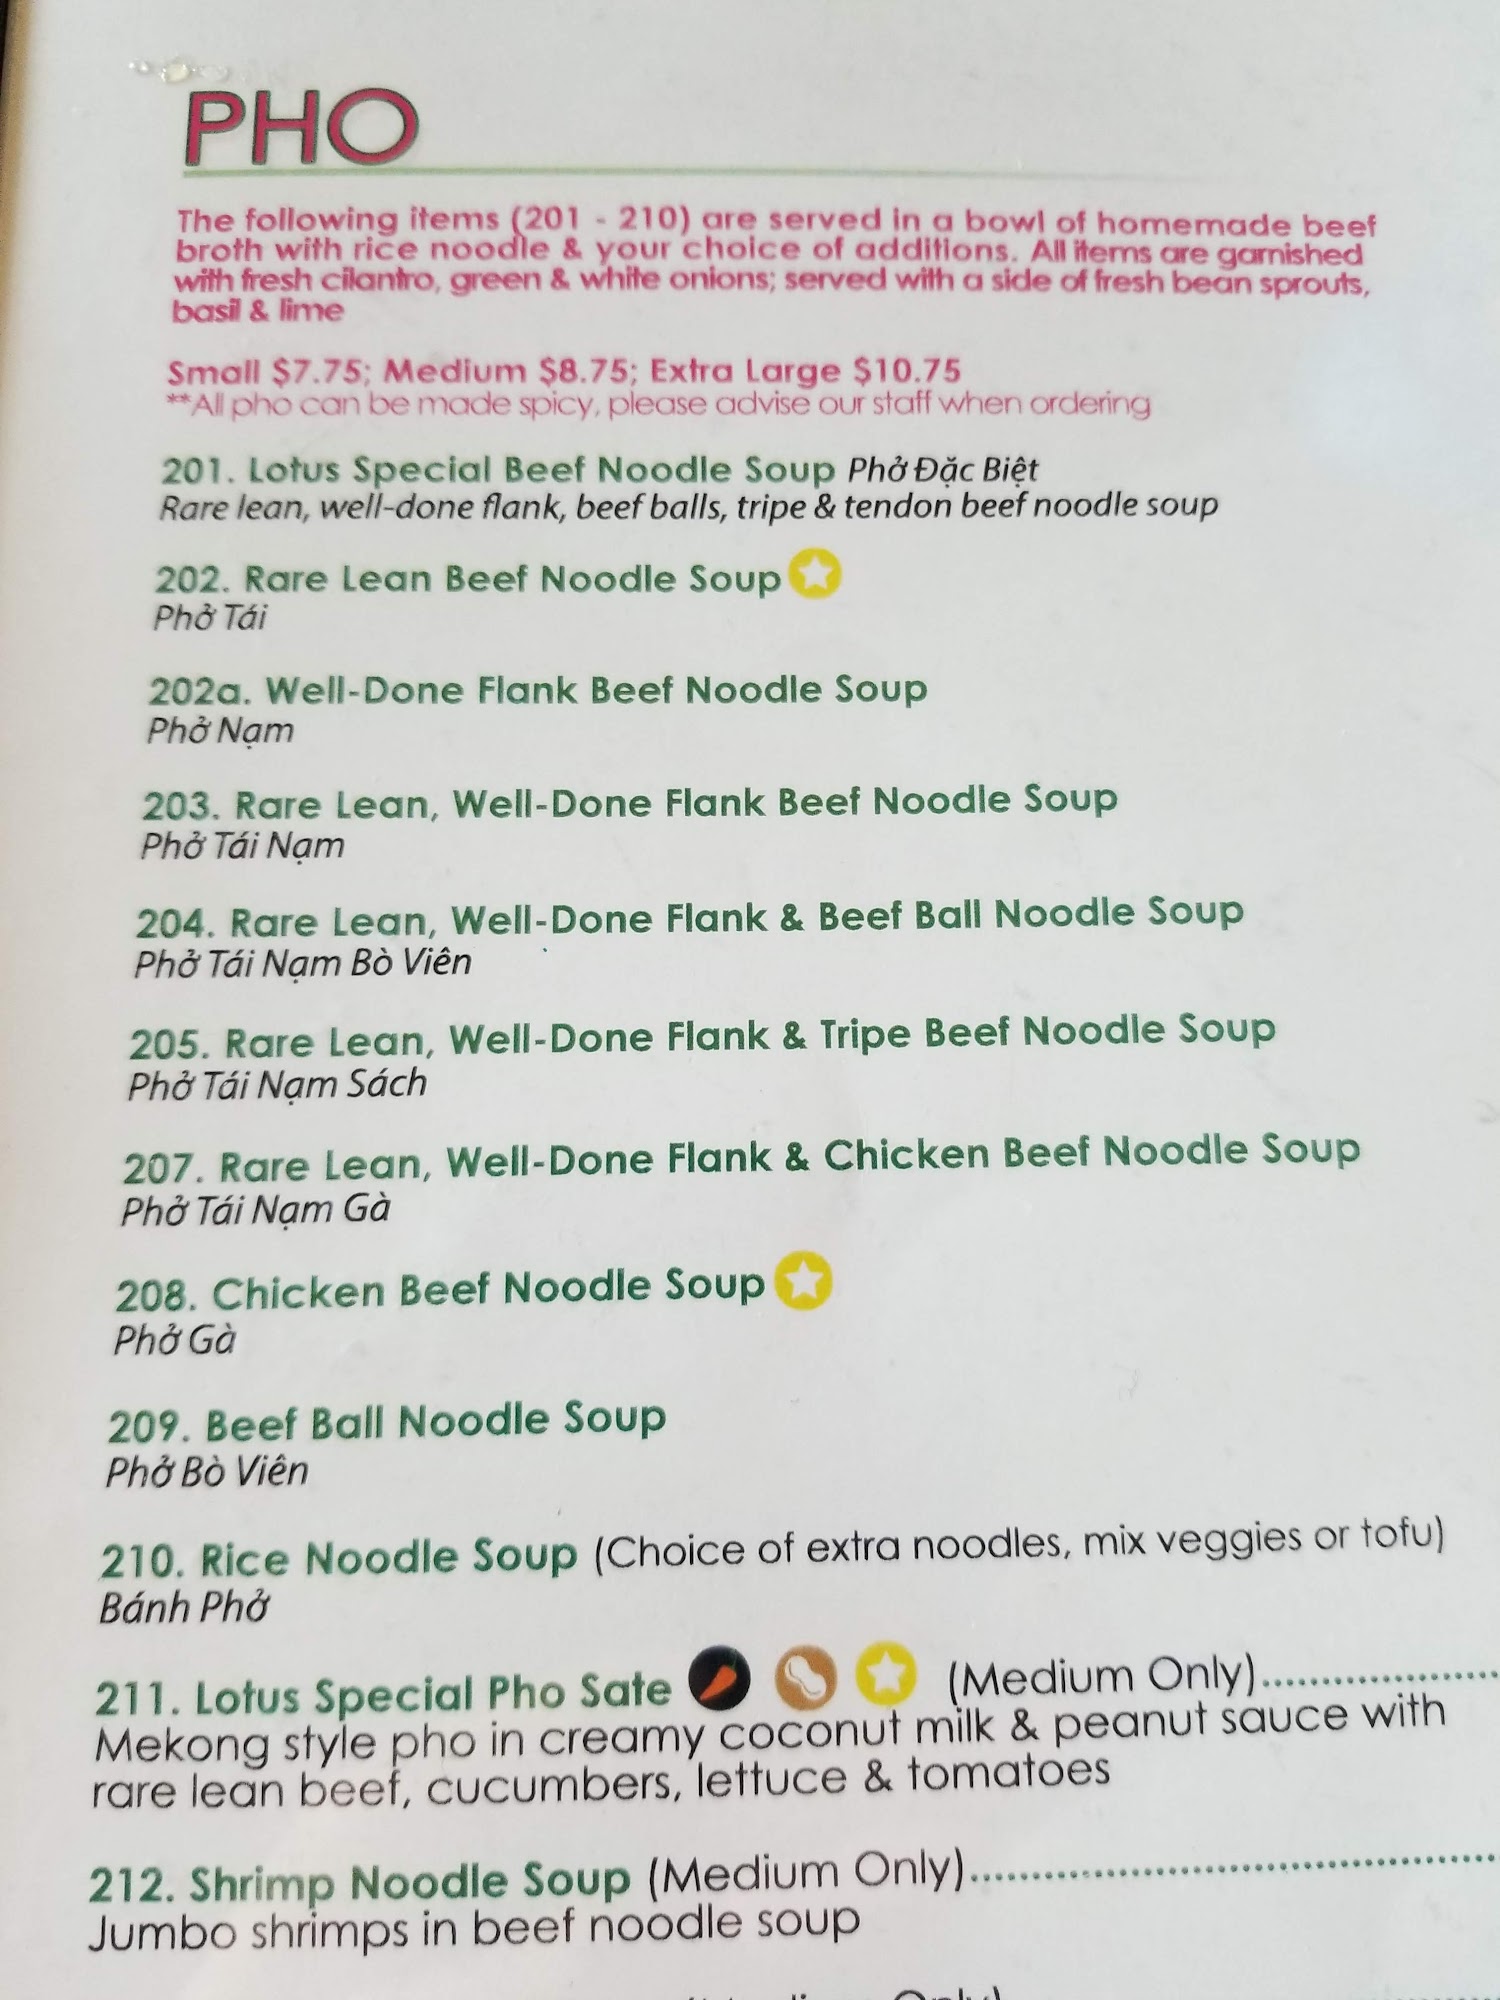 PHO
The following items (201 - 210) are served in a bowl of homemade beef
broth with rice noodle & your choice of additions. All items are garnished
with fresh cilantro, green & white onions; served with a side of fresh bean sprouts,
basil & lime
Small $7.75; Medium $8.75; Extra Large $10.75
**All pho can be made spicy, please advise our staff when ordering
201. Lotus Special Beef Noodle Soup Phở Đặc Biệt
Rare lean, well-done flank, beef balls, tripe & tendon beef noodle soup
202. Rare Lean Beef Noodle Soup
Phở Tái
202a. Well-Done Flank Beef Noodle Soup
Phở Nạm
203. Rare Lean, Well-Done Flank Beef Noodle Soup
Phở Tái Nạm
204. Rare Lean, Well-Done Flank & Beef Ball Noodle Soup
Phở Tái Nạm Bò Viên
205. Rare Lean, Well-Done Flank & Tripe Beef Noodle Soup
Phở Tái Nạm Sách
207. Rare Lean, Well-Done Flank & Chicken Beef Noodle Soup
Phở Tái Nạm Gà
208. Chicken Beef Noodle Soup
Phở Gà
209. Beef Ball Noodle Soup
Phở Bò Viên
210. Rice Noodle Soup (Choice of extra noodles, mix veggies or tofu)
Bánh Phở
211. Lotus Special Pho Sate (Medium Only)....................
Mekong style pho in creamy coconut milk & peanut sauce with
rare lean beef, cucumbers, lettuce & tomatoes
212. Shrimp Noodle Soup (Medium Only)............................................
Jumbo shrimps in beef noodle soup